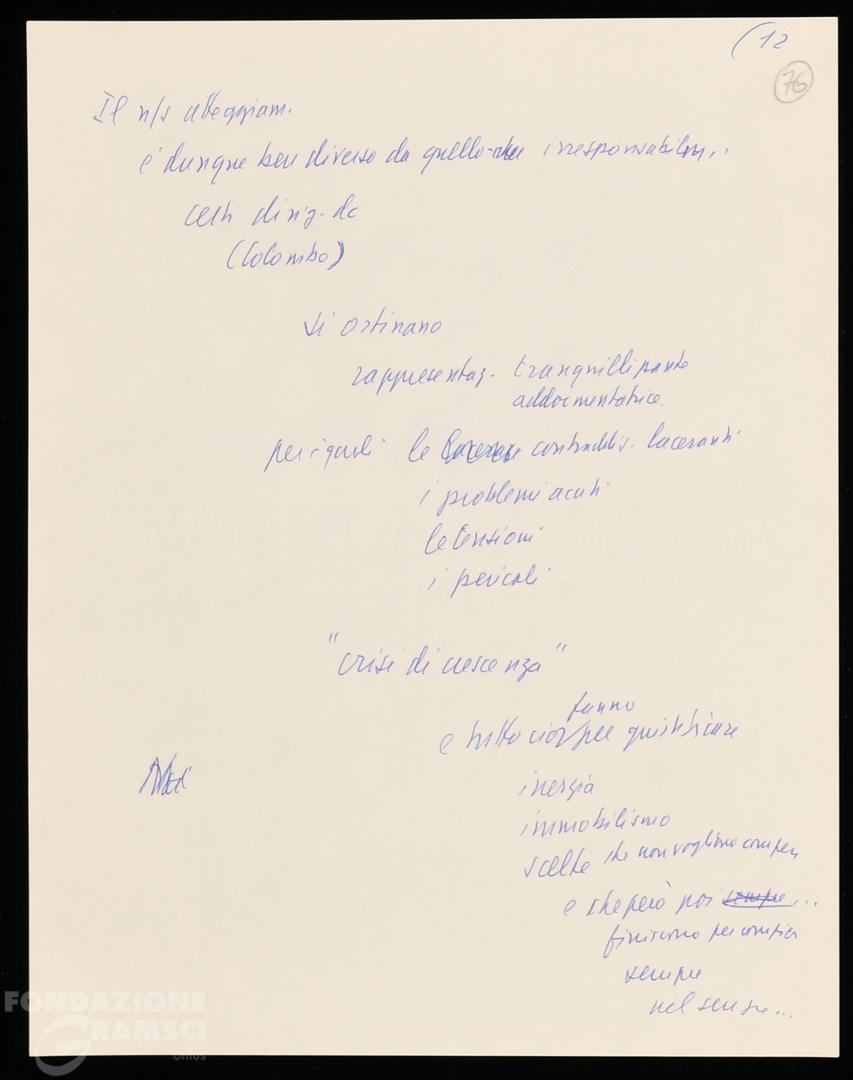 (12
76
Il n/s atteggiam.
è dunque ben diverso da quello irresponsabile...
certi dirig. dc
(Colombo)
si ostinano
rappresentaz. tranquillizzante
addormentatrice.
per i quali le contraddiz. laceranti
i problemi acuti
le tensioni
i pericoli
"crisi di crescenza"
fanno
e tutto ciò per giustificare
inerzia
immobilismo
scelte che non vogliono compiere
e che però poi sempre...
finiscono per compier
sempre
nel senso...
FONDAZIONE
GRAMSCI
onlus